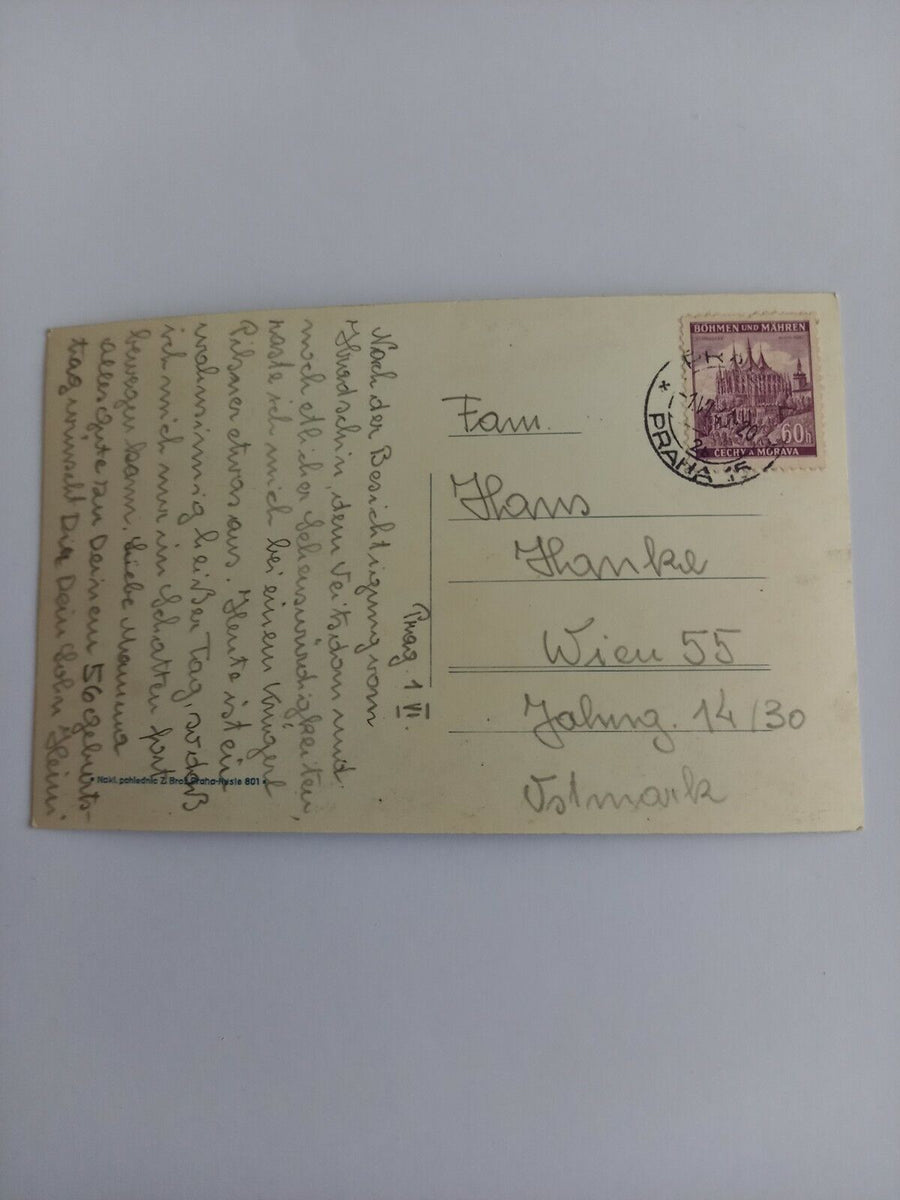 Prag. 1 VI.
Nach der Besichtigung vom
Hradschin, dem Veitsdom und
noch etlicher Sehenswürdigkeiten,
raste ich mich bei einem Krügerl
Pilsner etwas aus. Heute ist ein
wahnsinnig heißer Tag, sodaß
ich mich nur im Schatten fort
bewegen kann. Liebe Mamma
alles gute zu Deinem 56 geburts-
tag wünscht Dir Dein Sohn Heini.
Nakl. pohlednic Z. Brož, Praha-Nusle 801
BÖHMEN UND MÄHREN
60h
ČECHY A MORAVA
PRAHA 15
Fam.
Hans
Hanke
Wien 55
Jahng. 14/30
Ostmark